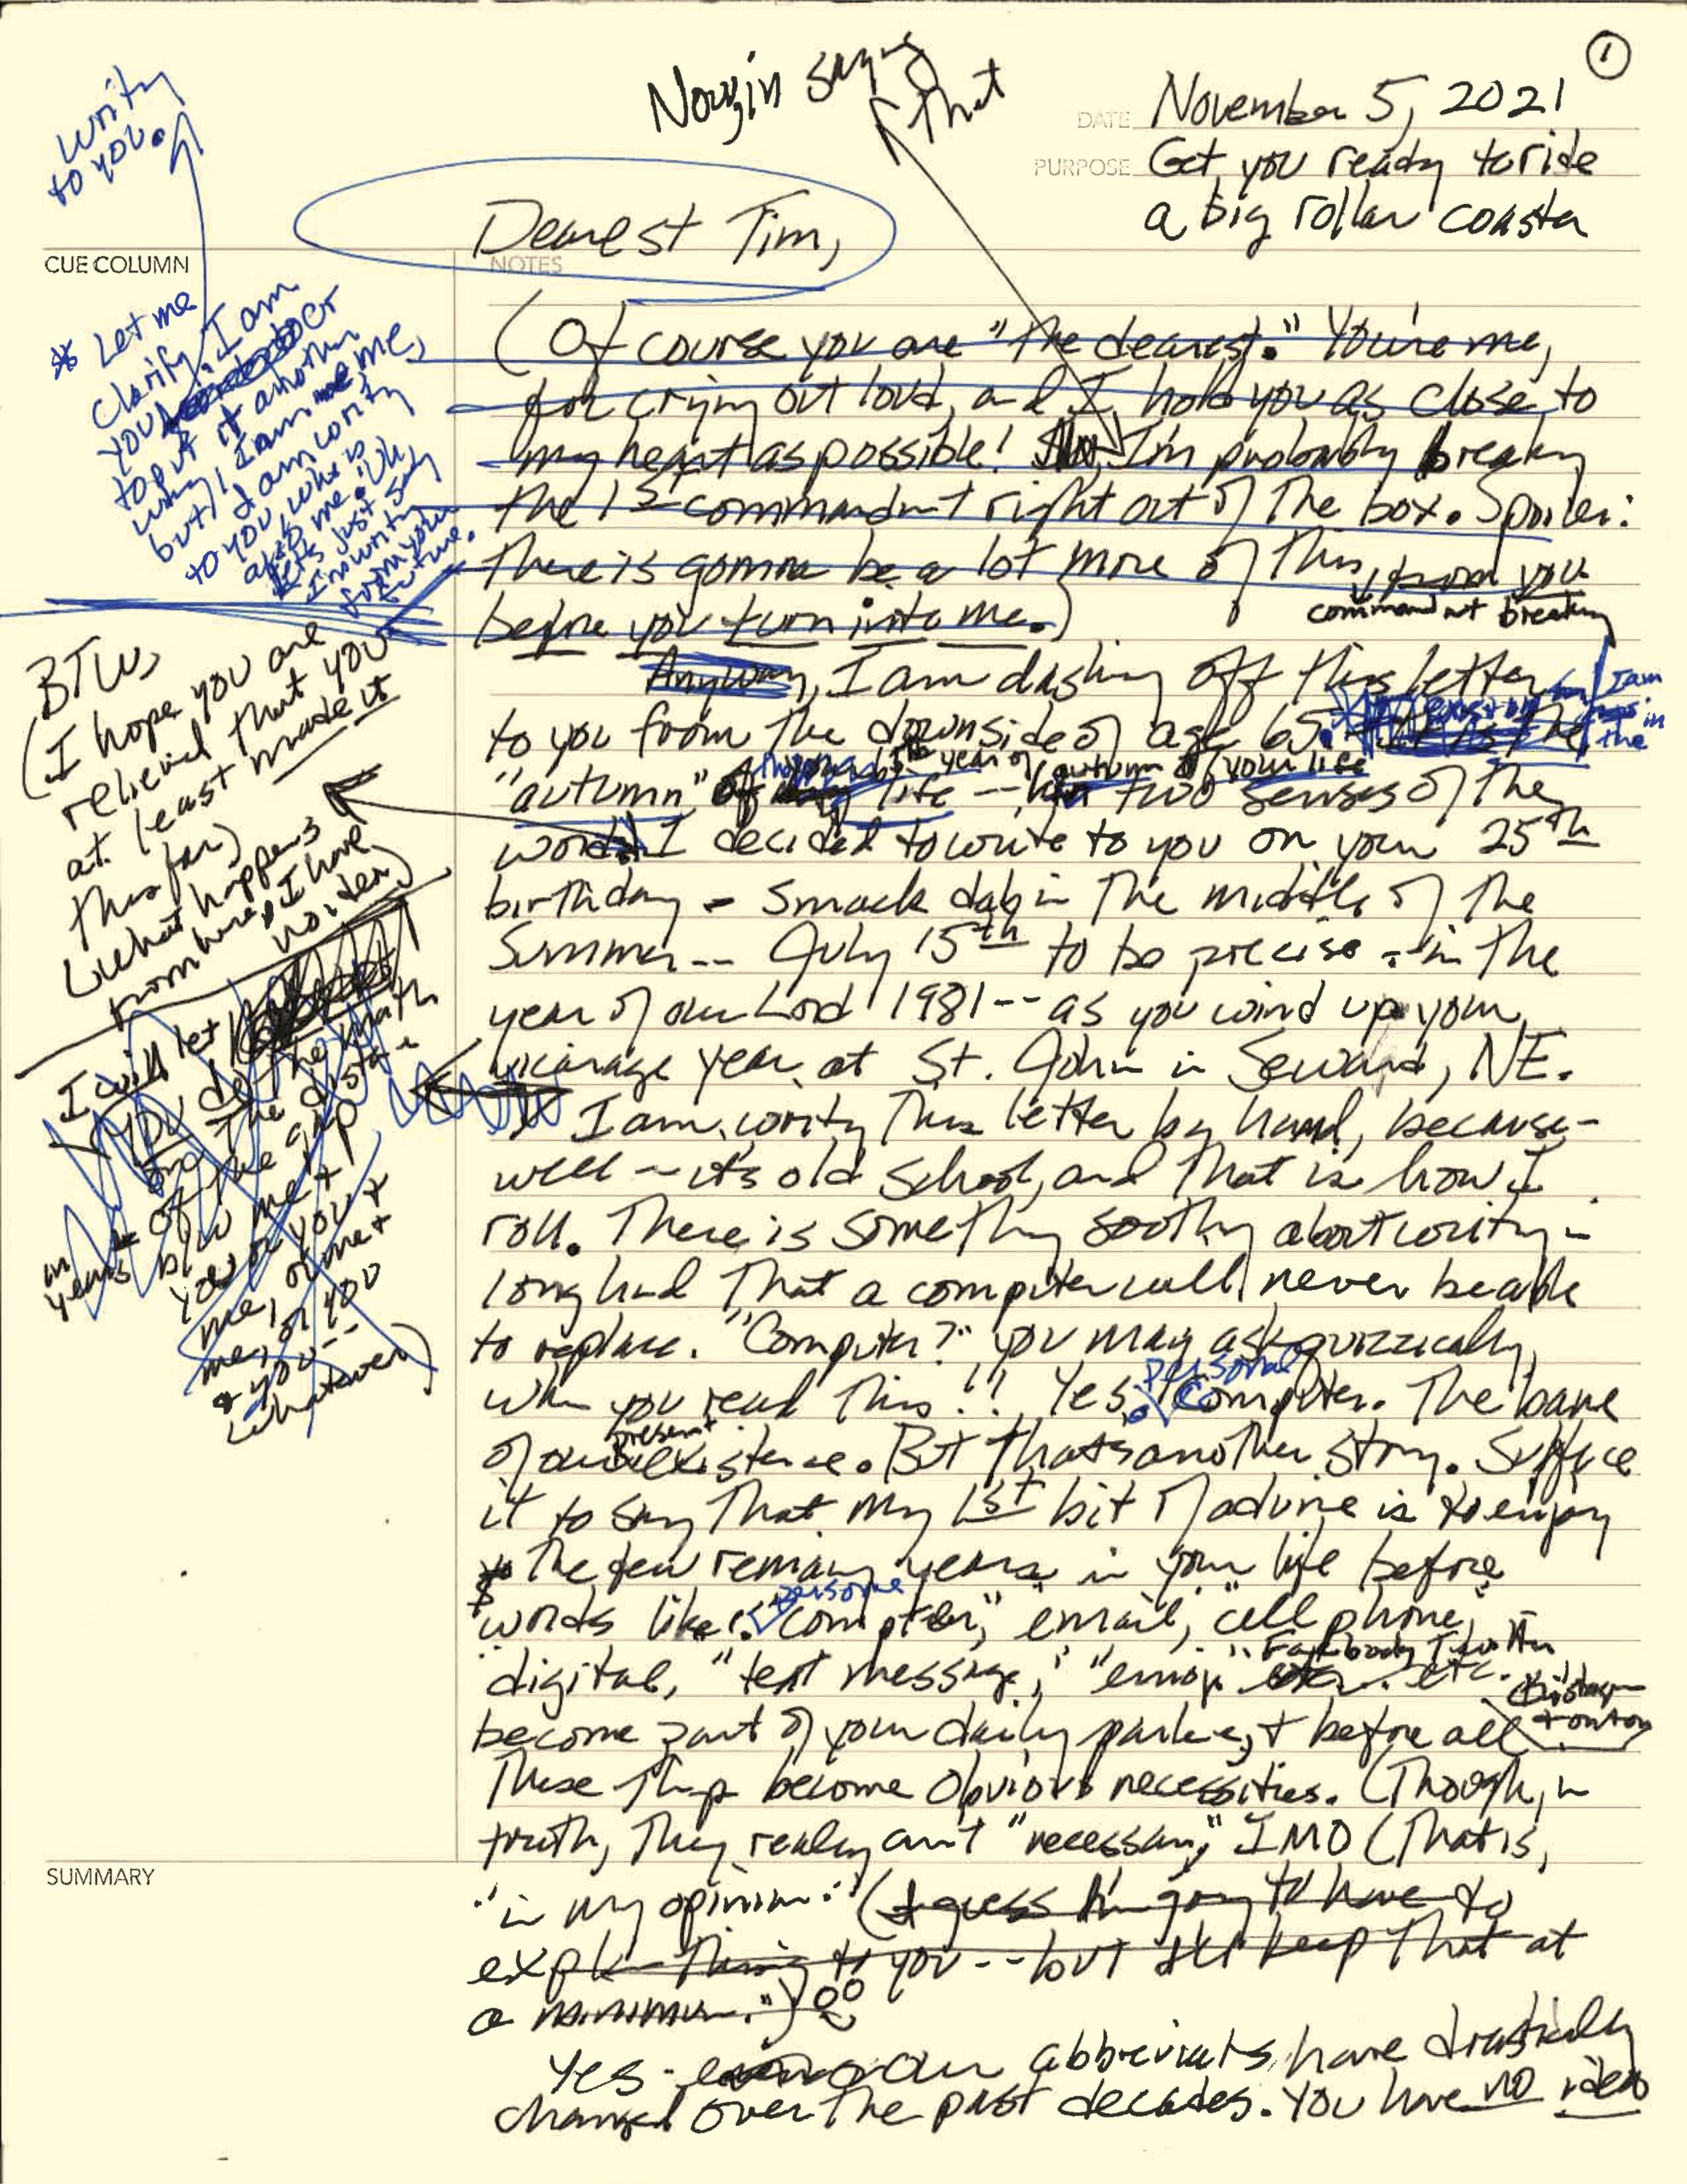 ①
November 5, 2021
DATE
PURPOSE Get you ready to ride
a big roller coaster
Now, in saying that
writing
to you.
Dearest Tim,
CUE COLUMN
NOTES
* Let me
clarify. I am
you
top of it another
why, I am me,
but I am writing
to you, who is
also me.
let's just say
I'm writing
from your
future.
(Of course you are "the dearest." You're me,
for crying out loud, and I hold you as close to
my heart as possible! I'm probably breaking
the 1st commandment right out of the box. Spoiler:
there is gonna be a lot more of this from you
commandment breaking
before you turn into me.)
BTW,
(I hope you are
relieved that you
at least made it
thus far)
(what happens
from here, I have
no idea)
Anyway, I am dashing off this letter
to you from the downside of age 65. I am
in
the
"autumn" of life -- in two senses of the
year of autumn of your life
word. I decided to write to you on your 25th
birthday - smack dab in the middle of the
Summer -- July 15th to be precise - in the
year of our Lord 1981 -- as you wind up your
vicarage year at St. John in Seward, NE.
I will let
you do the math
for the distance
in years of the gap
b/w me +
you or you +
me, or me +
me, or you
+ you --
whatever)
I am writing this letter by hand, because -
well - it's old school, and that is how I
roll. There is something soothing about writing in
long hand that a computer will never be able
to replace. "Computer?" you may ask quizzically,
when you read this!! Yes, personal computer. The bane
of our present existence. But that's another story. Suffice
it to say that my 1st bit of advice is to enjoy
the few remaining years in your life before
words like: "personal computer," "email," "cell phone,"
"digital," "text message," "emoji" "Facebook, Twitter
etc.
become part of your daily parlance, + before all
these things become obvious necessities. (Though, in
truth, they really aren't "necessary," IMO (That is,
SUMMARY
"in my opinion." (I guess I'm going to have to
explain things to you -- but I'll keep that at
a minimum.")
Yes - our abbreviations have drastically
changed over the past decades. You have no idea